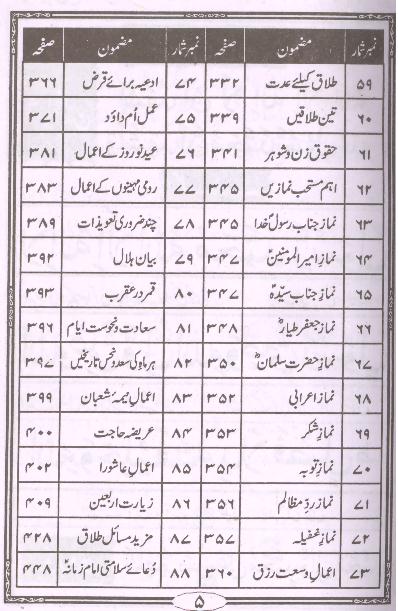 نمبر شمار مضمون صفحہ نمبر شمار مضمون صفحہ
۵۹ طلاق کیلئے عدت ۳۳۲ ۷۴ ادعیہ برائے قرض ۳۶۶
۶۰ تین طلاقیں ۳۳۹ ۷۵ عمل اُم داؤد ۳۷۱
۶۱ حقوق زن و شوہر ۳۴۱ ۷۶ عید نوروز کے اعمال ۳۸۱
۶۲ اہم مستحب نمازیں ۳۴۵ ۷۷ رومی مہینوں کے اعمال ۳۸۳
۶۳ نماز جناب رسولؐ خدا ۳۴۵ ۷۸ چند ضروری تعویذات ۳۸۹
۶۴ نماز امیر المومنینؑ ۳۴۷ ۷۹ بیان ہلال ۳۹۲
۶۵ نماز جناب سیدہؑ ۳۴۷ ۸۰ قمر در عقرب ۳۹۳
۶۶ نماز جعفر طیارؓ ۳۴۸ ۸۱ سعادت و نحوست ایام ۳۹۶
۶۷ نماز حضرت سلمانؓ ۳۵۰ ۸۲ ہر ماہ کی سعد و نحس تاریخیں ۳۹۷
۶۸ نماز اعرابی ۳۵۲ ۸۳ اعمال نیمۂ شعبان ۳۹۹
۶۹ نماز شکر ۳۵۳ ۸۴ عریضہ حاجت ۴۰۰
۷۰ نماز توبہ ۳۵۴ ۸۵ اعمال عاشورا ۴۰۲
۷۱ نماز ردِ مظالم ۳۵۶ ۸۶ زیارت اربعین ۴۰۹
۷۲ نماز غفیلہ ۳۵۷ ۸۷ مزید مسائل طلاق ۴۲۸
۷۳ اعمال وسعت رزق ۳۶۰ ۸۸ دُعائے سلامتی امام زمانہؑ ۴۴۸
۵